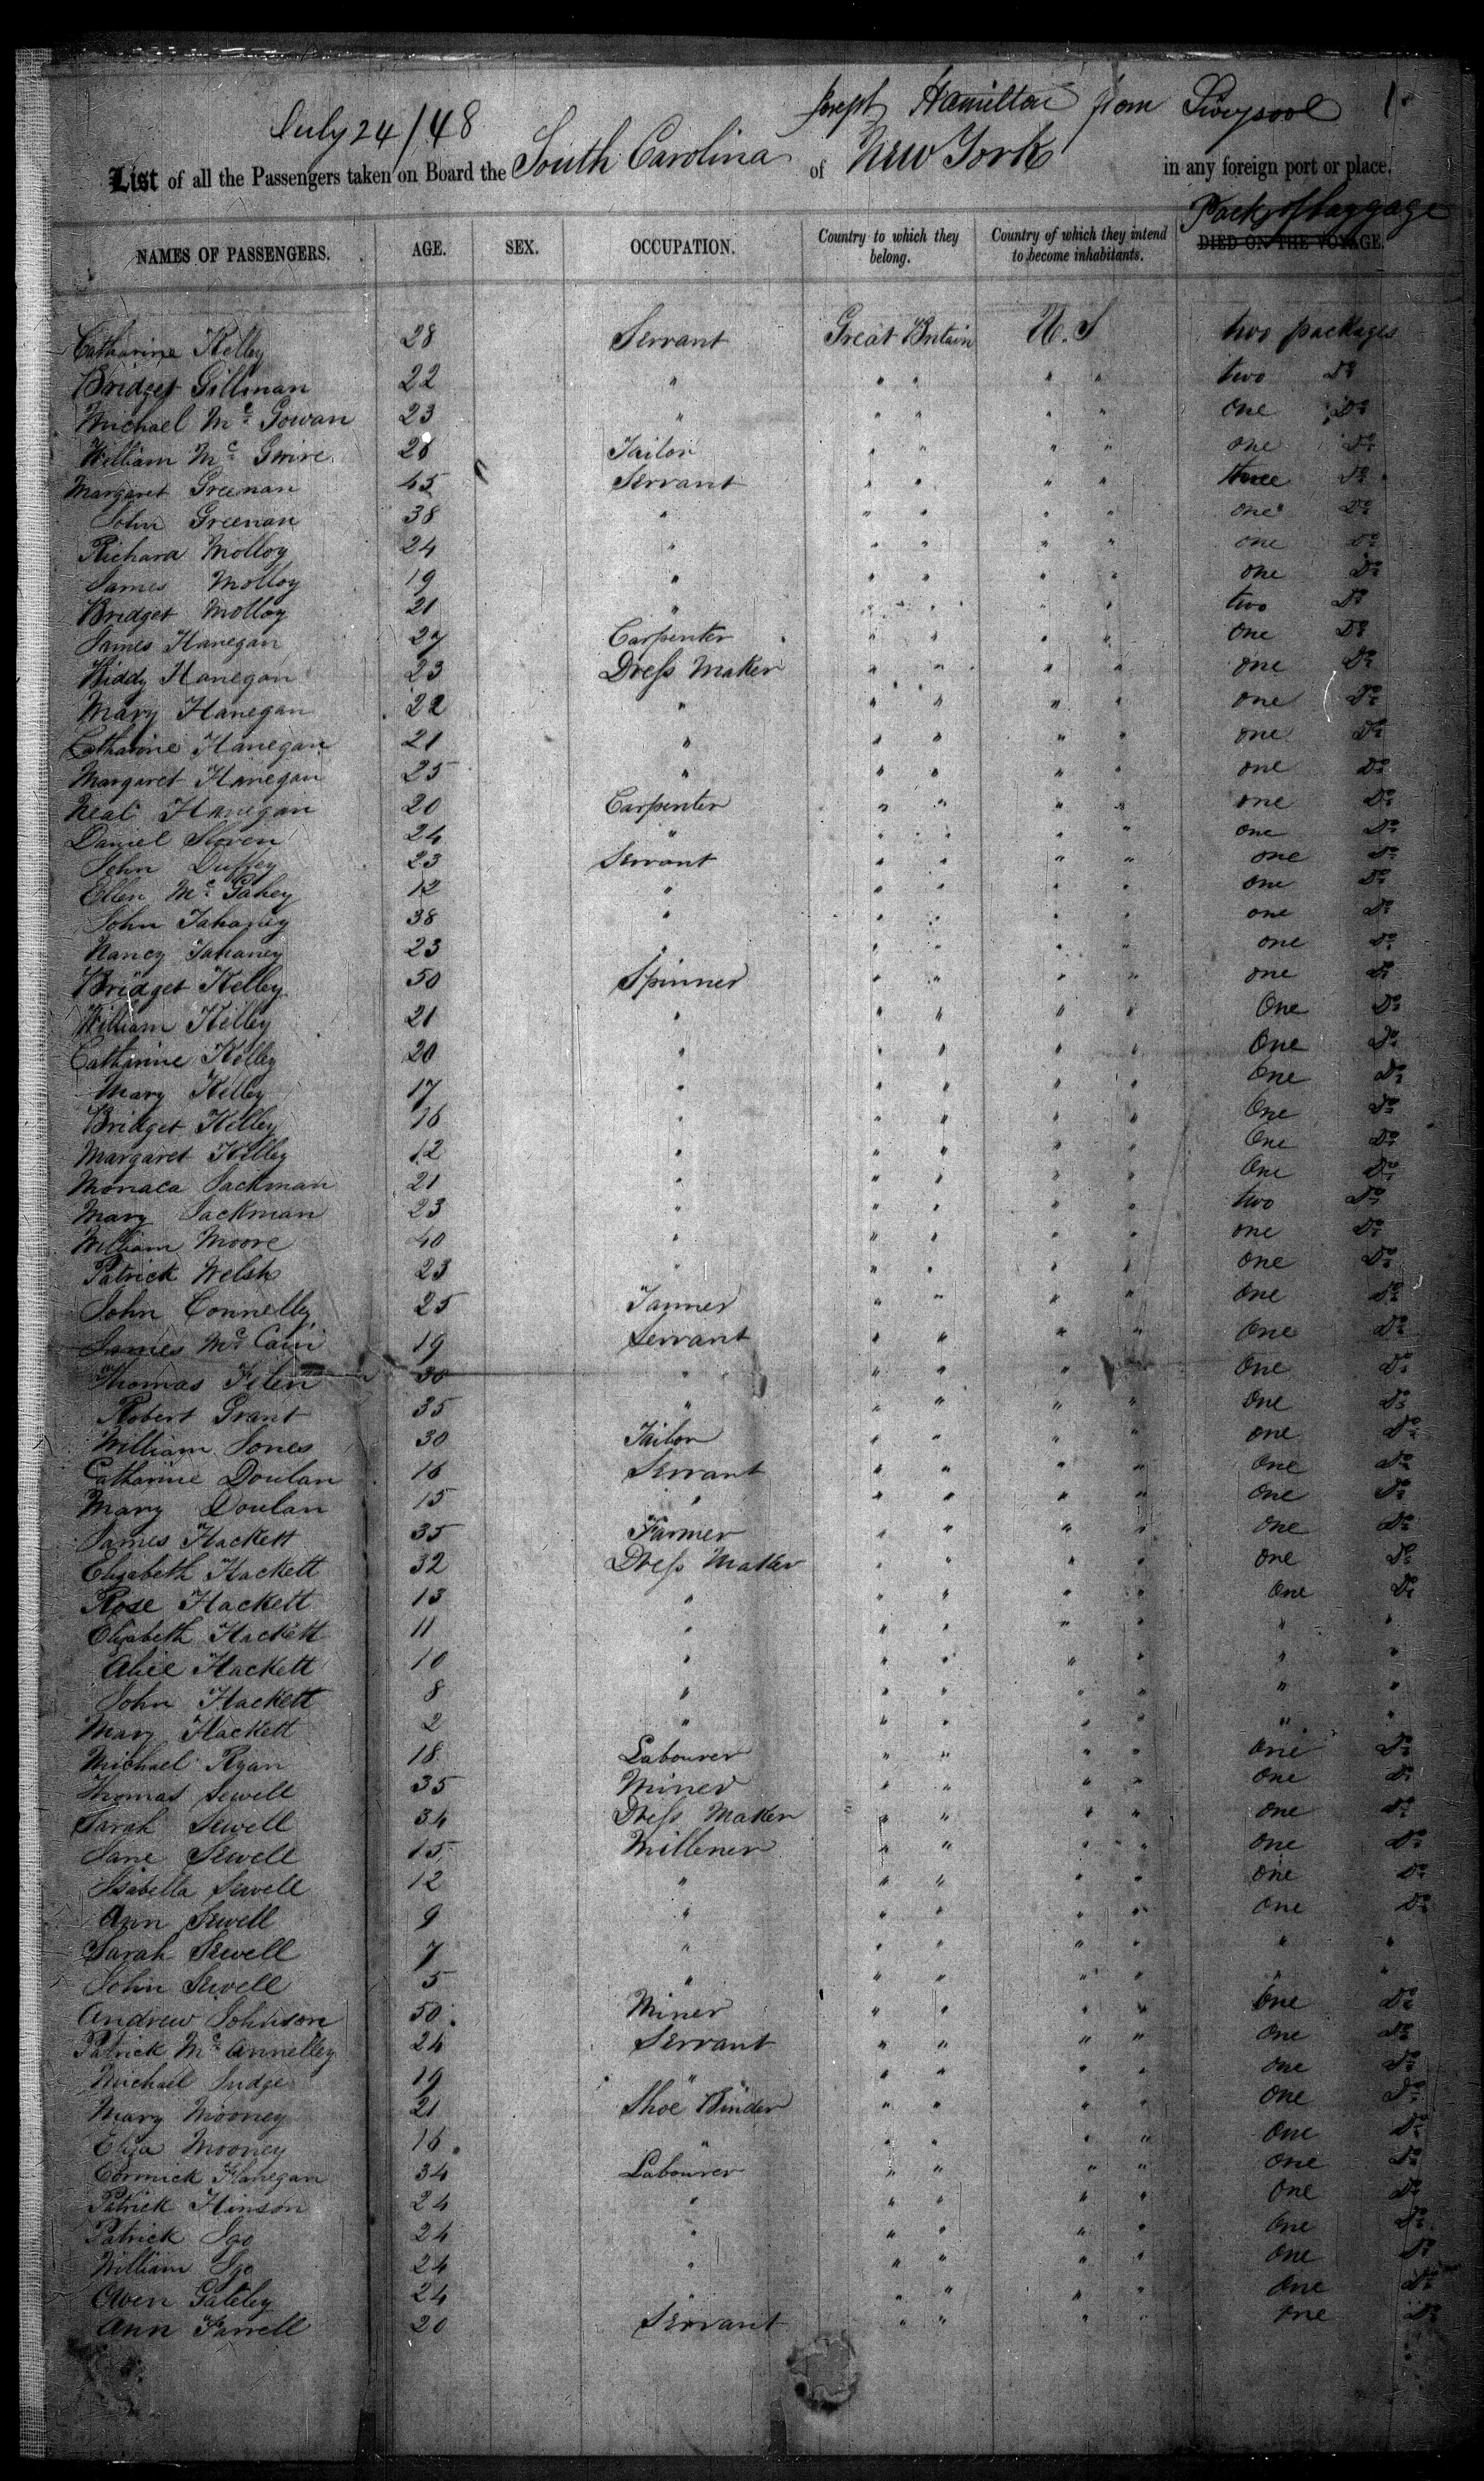 July 24/48 Joseph Hamilton from Liverpool 1.
List of all the Passengers taken on Board the South Carolina of New York in any foreign port or place.
Pack of baggage
NAMES OF PASSENGERS. AGE. SEX. OCCUPATION. Country to which they belong. Country of which they intend to become inhabitants. DIED ON THE VOYAGE.
Catharine Kelley 28 Servant Great Britain U.S two packages
Bridget Gillman 22 " " " " " two Do
Michael Mc Gowan 23 " " " " " one Do
William Mc Gwire 26 Tailor " " " " one Do
Margaret Greenan 45 Servant " " " " three Do
John Greenan 38 " " " " " one Do
Richard Molloy 24 " " " " " one Do
James Molloy 19 " " " " " one Do
Bridget Molloy 21 " " " " " two Do
James Hanegan 27 Carpenter " " " " one Do
Biddy Hanegan 23 Dress Maker " " " " one Do
Mary Hanegan 22 " " " " " one Do
Catharine Hanegan 21 " " " " " one Do
Margaret Hanegan 25 " " " " " one Do
Neal Hanegan 20 Carpenter " " " " one Do
Daniel Sloven 24 " " " " " one Do
John Duffey 23 Servant " " " " one Do
Ellen Mc Gahey 12 " " " " " one Do
John Tahaney 38 " " " " " one Do
Nancy Tahaney 23 " " " " " one Do
Bridget Kelley 50 Spinner " " " " one Do
William Kelley 21 " " " " " One Do
Catharine Kelley 20 " " " " " One Do
Mary Kelley 17 " " " " " One Do
Bridget Kelley 16 " " " " " One Do
Margaret Kelley 12 " " " " " One Do
Monaca Sackman 21 " " " " " One Do
Mary Sackman 23 " " " " " two Do
William Moore 40 " " " " " one Do
Patrick Welsh 23 " " " " " One Do
John Connelly 25 Tanner " " " " One Do
James Mc Cain 19 Servant " " " " One Do
Thomas Felen 30 " " " " " One Do
Robert Grant 35 " " " " " One Do
William Jones 30 Tailor " " " " one Do
Catharine Doulan 16 Servant " " " " One Do
Mary Doulan 15 " " " " " One Do
James Hackett 35 Farmer " " " " one Do
Elizabeth Hackett 32 Dress Maker " " " " one Do
Rose Hackett 13 " " " " " One Do
Elizabeth Hackett 11 " " " " " " "
Alice Hackett 10 " " " " " " "
John Hackett 8 " " " " " " "
Mary Hackett 2 " " " " " " "
Michael Ryan 18 Labourer " " " " One Do
Thomas Sewell 35 Miner " " " " One Do
Sarah Sewell 34 Dress Maker " " " " one Do
Jane Sewell 15 Millener " " " " One Do
Isabella Sewell 12 " " " " " One Do
Ann Sewell 9 " " " " " One Do
Sarah Sewell 7 " " " " " " "
John Sewell 5 " " " " " " "
Andrew Johnson 50 Miner " " " " One Do
Patrick Mc Annelley 24 Servant " " " " One Do
Michael Judge 19 " " " " " One Do
Mary Mooney 21 Shoe Binder " " " " One Do
Eliza Mooney 16 " " " " " One Do
Cormick Flanegan 34 Labourer " " " " One Do
Patrick Hinson 24 " " " " " One Do
Patrick Igo 24 " " " " " One Do
William Igo 24 " " " " " One Do
Owen Gateley 24 " " " " " One Do
Ann Farrell 20 Servant " " " " One Do